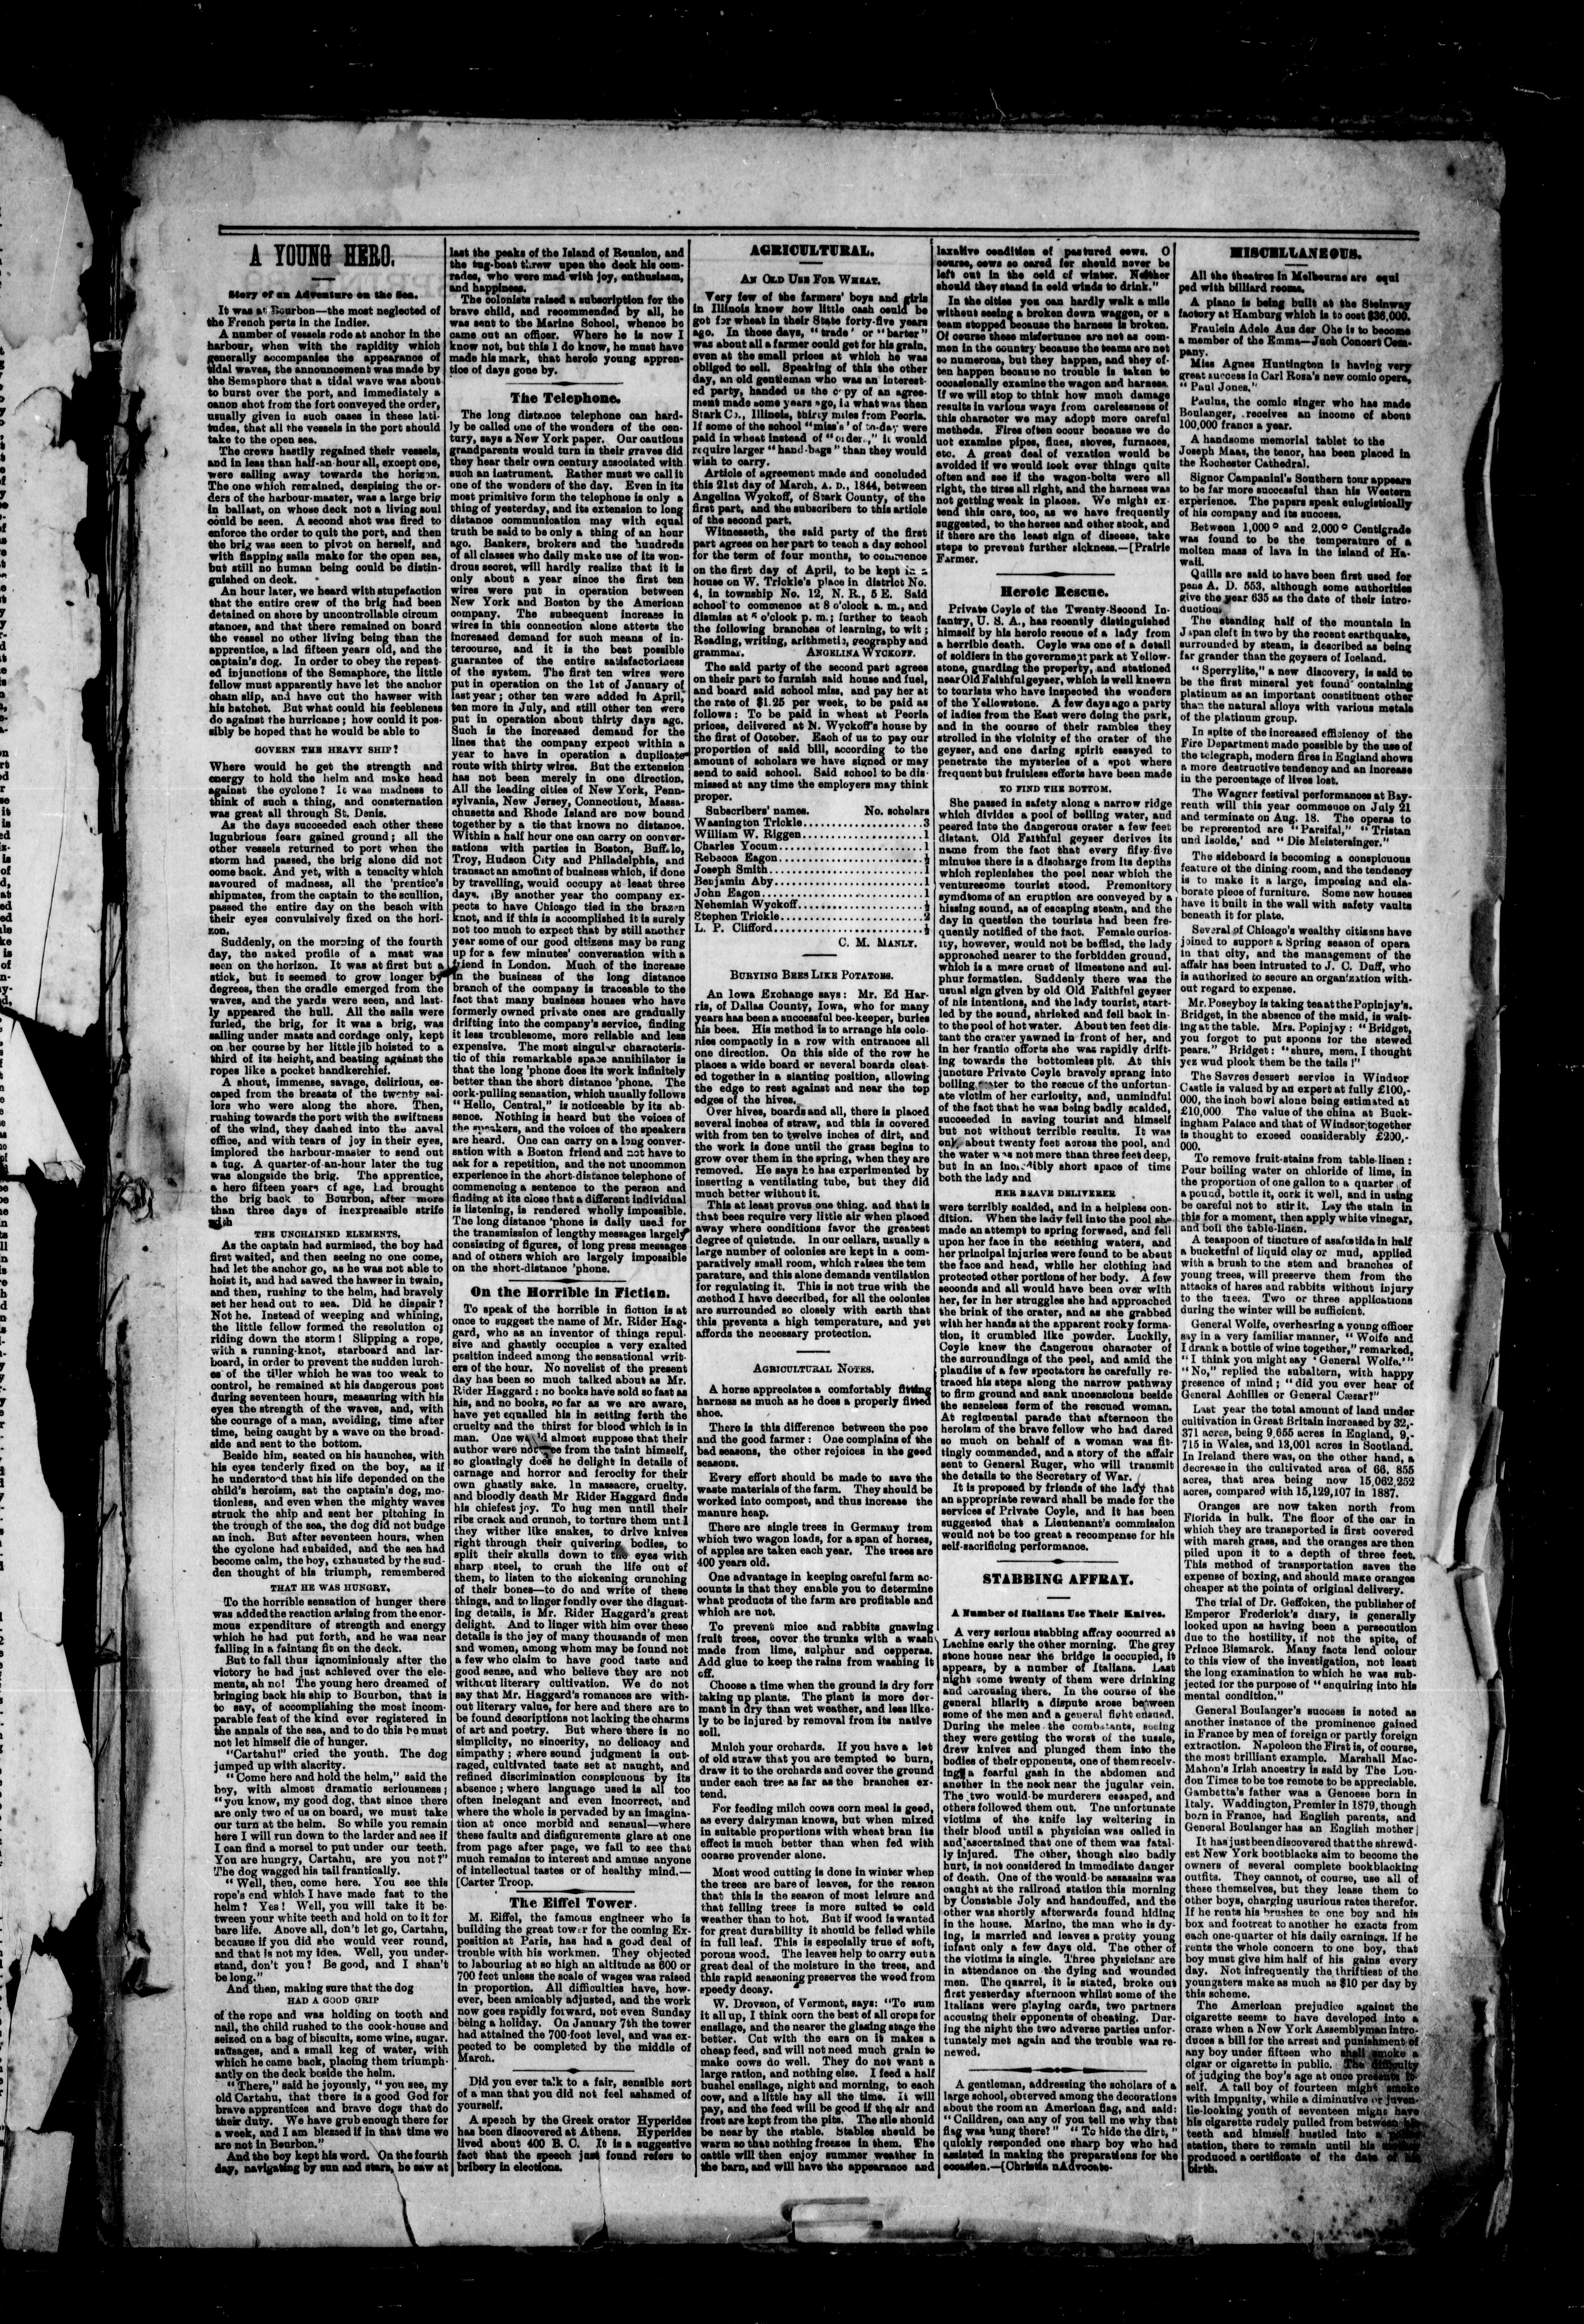 A YOUNG HERO.
Story of an Adventure on the Sea.
It was at Bourbon—the most neglected of
the French ports in the Indies.
A number of vessels rode at anchor in the
harbour, when with the rapidity which
generally accompanies the appearance of
tidal waves, the announcement was made by
the Semaphore that a tidal wave was about
to burst over the port, and immediately a
canon shot from the fort conveyed the order,
usually given in such cases in these lati-
tudes, that all the vessels in the port should
take to the open sea.
The crews hastily regained their vessels,
and in less than half-an-hour all, except one,
were sailing away towards the horizon.
The one which remained, despising the or-
ders of the harbour-master, was a large brig
in ballast, on whose deck not a living soul
could be seen. A second shot was fired to
enforce the order to quit the port, and then
the brig was seen to pivot on herself, and
with flapping sails make for the open sea,
but still no human being could be distin-
guished on deck.
An hour later, we heard with stupefaction
that the entire crew of the brig had been
detained on shore by uncontrollable circum
stances, and that there remained on board
the vessel no other living being than the
apprentice, a lad fifteen years old, and the
captain's dog. In order to obey the repeat-
ed injunctions of the Semaphore, the little
fellow must apparently have let the anchor
chain slip, and have out the hawser with
his hatchet. But what could his feebleness
do against the hurricane; how could it pos-
sibly be hoped that he would be able to
GOVERN THE HEAVY SHIP?
Where would he get the strength and
energy to hold the helm and make head
against the cyclone? It was madness to
think of such a thing, and consternation
was great all through St. Denis.
As the days succeeded each other these
lugubrious fears gained ground; all the
other vessels returned to port when the
storm had passed, the brig alone did not
come back. And yet, with a tenacity which
savoured of madness, all the 'prentice's
shipmates, from the captain to the scullion,
passed the entire day on the beach with
their eyes convulsively fixed on the hori-
zon.
Suddenly, on the morning of the fourth
day, the naked profile of a mast was
seen on the horizon. It was at first but a
stick, but it seemed to grow longer by
degrees, then the cradle emerged from the
waves, and the yards were seen, and last-
ly appeared the hull. All the sails were
furled, the brig, for it was a brig, was
sailing under masts and cordage only, kept
on her course by her little jib hoisted to a
third of its height, and beating against the
ropes like a pocket handkerchief.
A shout, immense, savage, delirious, es-
caped from the breasts of the twenty sai-
lors who were along the shore. Then,
rushing towards the port with the swiftness
of the wind, they dashed into the naval
office, and with tears of joy in their eyes,
implored the harbour-master to send out
a tug. A quarter-of-an-hour later the tug
was alongside the brig. The apprentice,
a hero fifteen years of age, had brought
the brig back to Bourbon, after more
than three days of inexpressible strife
with
THE UNCHAINED ELEMENTS.
As the captain had surmised, the boy had
first waited, and then seeing no one come,
had let the anchor go, as he was not able to
hoist it, and had sawed the hawser in twain,
and then, rushing to the helm, had bravely
set her head out to sea. Did he dispair?
Not he. Instead of weeping and whining,
the little fellow formed the resolution of
riding down the storm! Slipping a rope,
with a running-knot, starboard and lar-
board, in order to prevent the sudden lurch-
es of the tiller which he was too weak to
control, he remained at his dangerous post
during seventeen hours, measuring with his
eyes the strength of the waves, and, with
the courage of a man, avoiding, time after
time, being caught by a wave on the broad-
side and sent to the bottom.
Beside him, seated on his haunches, with
his eyes tenderly fixed on the boy, as if
he understood that his life depended on the
child's heroism, sat the captain's dog, mo-
tionless, and even when the mighty waves
struck the ship and sent her pitching in
the trough of the sea, the dog did not budge
an inch. But after seventeen hours, when
the cyclone had subsided, and the sea had
become calm, the boy, exhausted by the sud-
den thought of his triumph, remembered
THAT HE WAS HUNGRY.
To the horrible sensation of hunger there
was added the reaction arising from the enor-
mous expenditure of strength and energy
which he had put forth, and he was near
falling in a fainting fit on the deck.
But to fall thus ignominiously after the
victory he had just achieved over the ele-
ments, ah no! The young hero dreamed of
bringing back his ship to Bourbon, that is
to say, of accomplishing the most incom-
parable feat of the kind ever registered in
the annals of the sea, and to do this he must
not let himself die of hunger.
"Cartahu!" cried the youth. The dog
jumped up with alacrity.
"Come here and hold the helm," said the
boy, with almost dramatic seriousness;
"you know, my good dog, that since there
are only two of us on board, we must take
our turn at the helm. So while you remain
here I will run down to the larder and see if
I can find a morsel to put under our teeth.
You are hungry, Cartahu, are you not?"
The dog wagged his tail frantically.
"Well, then, come here. You see this
rope's end which I have made fast to the
helm? Yes! Well, you will take it be-
tween your white teeth and hold on to it for
bare life. Above all, don't let go, Cartahu,
because if you did she would veer round,
and that is not my idea. Well, you under-
stand, don't you? Be good, and I shan't
be long."
And then, making sure that the dog
HAD A GOOD GRIP
of the rope and was holding on tooth and
nail, the child rushed to the cook-house and
seized on a bag of biscuits, some wine, sugar.
sausages, and a small keg of water, with
which he came back, placing them triumph-
antly on the deck beside the helm.
"There," said he joyously, "you see, my
old Cartahu, that there is a good God for
brave apprentices and brave dogs that do
their duty. We have grub enough there for
a week, and I am blessed if in that time we
are not in Bourbon."
And the boy kept his word. On the fourth
day, navigating by sun and stars, he saw at
last the peaks of the Island of Reunion, and
the tug-boat threw upon the deck his com-
rades, who were mad with joy, enthusiasm,
and happiness.
The colonists raised a subscription for the
brave child, and recommended by all, he
was sent to the Marine School, whence he
came out an officer. Where he is now I
know not, but this I do know, he must have
made his mark, that heroic young appren-
tice of days gone by.
The Telephone.
The long distance telephone can hard-
ly be called one of the wonders of the cen-
tury, says a New York paper. Our cautious
grandparents would turn in their graves did
they hear their own century associated with
such an instrument. Rather must we call it
one of the wonders of the day. Even in its
most primitive form the telephone is only a
thing of yesterday, and its extension to long
distance communication may with equal
truth be said to be only a thing of an hour
ago. Bankers, brokers and the hundreds
of all classes who daily make use of its won-
drous secret, will hardly realize that it is
only about a year since the first ten
wires were put in operation between
New York and Boston by the American
company. The subsequent increase in
wires in this connection alone attests the
increased demand for such means of in-
tercourse, and it is the best possible
guarantee of the entire satisfactoriness
of the system. The first ten wires were
put in operation on the 1st of January of
last year; other ten were added in April,
ten more in July, and still other ten were
put in operation about thirty days ago.
Such is the increased demand for the
lines that the company expect within a
year to have in operation a duplicate
route with thirty wires. But the extension
has not been merely in one direction.
All the leading cities of New York, Penn-
sylvania, New Jersey, Connecticut, Massa-
chusetts and Rhode Island are now bound
together by a tie that knows no distance.
Within a half hour one can carry on conver-
sations with parties in Boston, Buffalo,
Troy, Hudson City and Philadelphia, and
transact an amount of business which, if done
by travelling, would occupy at least three
days. By another year the company ex-
pects to have Chicago tied in the brazen
knot, and if this is accomplished it is surely
not too much to expect that by still another
year some of our good citizens may be rung
up for a few minutes' conversation with a
friend in London. Much of the increase
in the business of the long distance
branch of the company is traceable to the
fact that many business houses who have
formerly owned private ones are gradually
drifting into the company's service, finding
it less troublesome, more reliable and less
expensive. The most singular characteris-
tic of this remarkable space annihilator is
that the long 'phone does its work infinitely
better than the short distance 'phone. The
cork-pulling sensation, which usually follows
"Hello, Central," is noticeable by its ab-
sence. Nothing is heard but the voices of
the speakers, and the voices of the speakers
are heard. One can carry on a long conver-
sation with a Boston friend and not have to
ask for a repetition, and the not uncommon
experience in the short-distance telephone of
commencing a sentence to the person and
finding at its close that a different individual
is listening, is rendered wholly impossible.
The long distance 'phone is daily used for
the transmission of lengthy messages largely
consisting of figures, of long press messages
and of others which are largely impossible
on the short-distance 'phone.
On the Horrible in Fiction.
To speak of the horrible in fiction is at
once to suggest the name of Mr. Rider Hag-
gard, who as an inventor of things repul-
sive and ghastly occupies a very exalted
position indeed among the sensational writ-
ers of the hour. No novelist of the present
day has been so much talked about as Mr.
Rider Haggard: no books have sold so fast as
his, and no books, so far as we are aware,
have yet equalled his in setting forth the
cruelty and the thirst for blood which is in
man. One would almost suppose that their
author were not free from the taint himself,
so gloatingly does he delight in details of
carnage and horror and ferocity for their
own ghastly sake. In massacre, cruelty,
and bloodly death Mr Rider Haggard finds
his chiefest joy. To hug men until their
ribs crack and crunch, to torture them until
they wither like snakes, to drive knives
right through their quivering bodies, to
split their skulls down to the eyes with
sharp steel, to crush the life out of
them, to listen to the sickening crunching
of their bones—to do and write of these
things, and to linger fondly over the disgust-
ing details, is Mr. Rider Haggard's great
delight. And to linger with him over these
details is the joy of many thousands of men
and women, among whom may be found not
a few who claim to have good taste and
good sense, and who believe they are not
without literary cultivation. We do not
say that Mr. Haggard's romances are with-
out literary value, for here and there are to
be found descriptions not lacking the charms
of art and poetry. But where there is no
simplicity, no sincerity, no delicacy and
simpathy; where sound judgment is out-
raged, cultivated taste set at naught, and
refined discrimination conspicuous by its
absence; where language used is all too
often inelegant and even incorrect, and
where the whole is pervaded by an imagina-
tion at once morbid and sensual—where
these faults and disfigurements glare at one
from page after page, we fail to see that
much remains to interest and amuse anyone
of intellectual tastes or of healthy mind.—
[Carter Troop.
The Eiffel Tower.
M. Eiffel, the famous engineer who is
building the great tower for the coming Ex-
position at Paris, has had a good deal of
trouble with his workmen. They objected
to labouring at so high an altitude as 600 or
700 feet unless the scale of wages was raised
in proportion. All difficulties have, how-
ever, been amicably adjusted, and the work
now goes rapidly forward, not even Sunday
being a holiday. On January 7th the tower
had attained the 700-foot level, and was ex-
pected to be completed by the middle of
March.
Did you ever talk to a fair, sensible sort
of a man that you did not feel ashamed of
yourself.
A speech by the Greek orator Hyperides
has been discovered at Athens. Hyperides
lived about 400 B. C. It is a suggestive
fact that the speech just found refers to
bribery in elections.
AGRICULTURAL.
AN OLD USE FOR WHEAT.
Very few of the farmers' boys and girls
in Illinois know how little cash could be
got for wheat in their State forty-five years
ago. In those days, "trade' or "barter"
was about all a farmer could get for his grain,
even at the small prices at which he was
obliged to sell. Speaking of this the other
day, an old gentleman who was an interest-
ed party, handed us the copy of an agree-
ment made some years ago, in what was then
Stark Co., Illinois, thirty miles from Peoria.
If some of the school "miss's' of to-day were
paid in wheat instead of "older.," it would
require larger "hand-bags" than they would
wish to carry.
Article of agreement made and concluded
this 21st day of March, A. D., 1844, between
Angelina Wyckoff, of Stark County, of the
first part, and the subscribers to this article
of the second part.
Witnesseth, the said party of the first
part agrees on her part to teach a day school
for the term of four months, to commence
on the first day of April, to be kept in a
house on W. Trickle's place in district No.
4, in township No. 12, N. R., 5 E. Said
school to commence at 8 o'clock a. m., and
dismiss at 5 o'clock p. m.; further to teach
the following branches of learning, to wit;
Reading, writing, arithmetic, geography and
grammar. ANGELINA WYCKOFF.
The said party of the second part agrees
on their part to furnish said house and fuel,
and board said school miss, and pay her at
the rate of $1.25 per week, to be paid as
follows: To be paid in wheat at Peoria
prices, delivered at N. Wyckoff's house by
the first of October. Each of us to pay our
proportion of said bill, according to the
amount of scholars we have signed or may
send to said school. Said school to be dis-
missed at any time the employers may think
proper.
Subscribers' names. No. scholars
Wasnington Trickle 3
William W. Riggen 1
Charles Yocum 1
Rebecca Eagon ½
Joseph Smith 1
Benjamin Aby 1
John Eagon 1
Nehemiah Wyckoff ½
Stephen Trickle 2
L. P. Clifford ½
C. M. MANLY.
BURYING BEES LIKE POTATOES.
An Iowa Exchange says: Mr. Ed Har-
ris, of Dallas County, Iowa, who for many
years has been a successful bee-keeper, buries
his bees. His method is to arrange his colo-
nies compactly in a row with entrances all
one direction. On this side of the row he
places a wide board or several boards cleat-
ed together in a slanting position, allowing
the edge to rest against and near the top
edges of the hives.
Over hives, boards and all, there is placed
several inches of straw, and this is covered
with from ten to twelve inches of dirt, and
the work is done until the grass begins to
grow over them in the spring, when they are
removed. He says he has experimented by
inserting a ventilating tube, but they did
much better without it.
This at least proves one thing. and that is
that bees require very little air when placed
away where conditions favor the greatest
degree of quietude. In our cellars, usually a
large number of colonies are kept in a com-
paratively small room, which raises the tem
parature, and this alone demands ventilation
for regulating it. This is not true with the
method I have described, for all the colonies
are surrounded so closely with earth that
this prevents a high temperature, and yet
affords the necessary protection.
AGRICULTURAL NOTES.
A horse appreciates a comfortably fitting
harness as much as he does a properly fitted
shoe.
There is this difference between the poo
and the good farmer: One complains of the
bad seasons, the other rejoices in the good
seasons.
Every effort should be made to save the
waste materials of the farm. They should be
worked into compost, and thus increase the
manure heap.
There are single trees in Germany from
which two wagon loads, for a span of horses,
of apples are taken each year. The trees are
400 years old.
One advantage in keeping careful farm ac-
counts is that they enable you to determine
what products of the farm are profitable and
which are not.
To prevent mice and rabbits gnawing
fruit trees, cover the trunks with a wash
made from lime, sulphur and copperas.
Add glue to keep the rains from washing it
off.
Choose a time when the ground is dry forr
taking up plants. The plant is more dor-
mant in dry than wet weather, and less like-
ly to be injured by removal from its native
soil.
Mulch your orchards. If you have a lot
of old straw that you are tempted to burn,
draw it to the orchards and cover the ground
under each tree as far as the branches ex-
tend.
For feeding milch cows corn meal is good,
as every dairyman knows, but when mixed
in suitable proportions with wheat bran its
effect is much better than when fed with
coarse provender alone.
Most wood cutting is done in winter when
the trees are bare of leaves, for the reason
that this is the season of most leisure and
that felling trees is more suited to cold
weather than to hot. But if wood is wanted
for great durability it should be felled while
in full leaf. This is especially true of soft,
porous wood. The leaves help to carry out a
great deal of the moisture in the trees, and
this rapid seasoning preserves the wood from
speedy decay.
W. Drovson, of Vermont, says: "To sum
it all up, I think corn the best of all crops for
ensilage, and the nearer the glazing stage the
better. Cut with the ears on it makes a
cheap feed, and will not need much grain to
make cows do well. They do not want a
large ration, and nothing else. I feed a half
bushel ensilage, night and morning, to each
cow, and a little hay all the time. It will
pay, and the feed will be good if the air and
frost are kept from the pits. The silo should
be near by the stable. Stables should be
warm so that nothing freezes in them. The
cattle will then enjoy summer weather in
the barn, and will have the appearance and
laxative condition of pastured cows. O
course, cows so cared for should never be
left out in the cold of winter. Neither
should they stand in cold winds to drink."
In the cities you can hardly walk a mile
without seeing a broken down waggon, or a
team stopped because the harness is broken.
Of course these misfortunes are not as com-
men in the country because the teams are not
so numerous, but they happen, and they of-
ten happen because no trouble is taken to
occasionally examine the wagon and harness.
If we will stop to think how much damage
results in various ways from carelessness of
this character we may adopt more careful
methods. Fires often occur because we do
not examine pipes, flues, stoves, furnaces,
etc. A great deal of vexation would be
avoided if we would look over things quite
often and see if the wagon-bolts were all
right, the tires all right, and the harness was
not getting weak in places. We might ex-
tend this care, too, as we have frequently
suggested, to the horses and other stock, and
if there are the least sign of disease, take
steps to prevent further sickness.—[Prairie
Farmer.
Heroic Rescue.
Private Coyle of the Twenty-Second In-
fantry, U. S. A., has recently distinguished
himself by his heroic rescue of a lady from
a horrible death. Coyle was one of a detail
of soldiers in the government park at Yellow-
stone, guarding the property, and stationed
near Old Faithful geyser, which is well known
to tourists who have inspected the wonders
of the Yellowstone. A few days ago a party
of ladies from the East were doing the park,
and in the course of their rambles they
strolled in the vicinity of the crater of the
geyser, and one daring spirit essayed to
penetrate the mysteries of a spot where
frequent but fruitless efforts have been made
TO FIND THE BOTTOM.
She passed in safety along a narrow ridge
which divides a pool of boiling water, and
peered into the dangerous crater a few feet
distant. Old Faithful geyser derives its
name from the fact that every fifty-five
minutes there is a discharge from its depths
which replenishes the pool near which the
venturesome tourist stood. Premonitory
symdtoms of an eruption are conveyed by a
hissing sound, as of escaping steam, and the
day in question the tourists had been fre-
quently notified of the fact. Female curios-
ity, however, would not be baffled, the lady
approached nearer to the forbidden ground,
which is a mere crust of limestone and sul-
phur formation. Suddenly there was the
usual sign given by old Old Faithful geyser
of his intentions, and the lady tourist, start-
led by the sound, shrieked and fell back in-
to the pool of hot water. About ten feet dis-
tant the crater yawned in front of her, and
in her frantic efforts she was rapidly drift-
ing towards the bottomless pit. At this
juncture Private Coyle bravely sprang into
boiling water to the rescue of the unfortun-
ate victim of her curiosity, and, unmindful
of the fact that he was being badly scalded,
succeeded in saving tourist and himself
but not without terrible results. It was
only about twenty feet across the pool, and
the water was not more than three feet deep,
but in an incredibly short space of time
both the lady and
HER BRAVE DELIVERER
were terribly scalded, and in a helpless con-
dition. When the lady fell into the pool she
made an attempt to spring forwaed, and fell
upon her face in the seething waters, and
her principal injuries were found to be about
the face and head, while her clothing had
protected other portions of her body. A few
seconds and all would have been over with
her, for in her struggles she had approached
the brink of the crater, and as she grabbed
with her hands at the apparent rocky forma-
tion, it crumbled like powder. Luckily,
Coyle knew the dangerous character of
the surroundings of the pool, and amid the
plaudits of a few spectators he carefully re-
traced his steps along the narrow pathway
to firm ground and sank unconscious beside
the senseless form of the rescued woman.
At regimental parade that afternoon the
heroism of the brave fellow who had dared
so much on behalf of a woman was fit-
tingly commended, and a story of the affair
sent to General Ruger, who will transmit
the details to the Secretary of War.
It is proposed by friends of the lady that
an appropriate reward shall be made for the
services of Private Coyle, and it has been
suggested that a Lieutenant's commission
would not be too great a recompense for his
self-sacrificing performance.
STABBING AFFRAY.
A Number of Italians Use Their Knives.
A very serious stabbing affray occurred at
Lachine early the other morning. The grey
stone house near the bridge is occupied, it
appears, by a number of Italians. Last
night some twenty of them were drinking
and carousing there. In the course of the
general hilarity a dispute arose between
some of the men and a general fight ensued.
During the melee the combatants, seeing
they were getting the worst of the tussle,
drew knives and plunged them into the
bodies of their opponents, one of them receiv-
ing a fearful gash in the abdomen and
another in the neck near the jugular vein.
The two would-be murderers escaped, and
others followed them out. The unfortunate
victims of the knife lay weltering in
their blood until a physician was called in
and ascertained that one of them was fatal-
ly injured. The other, though also badly
hurt, is not considered in immediate danger
of death. One of the would-be assassins was
caught at the railroad station this morning
by Constable Joly and handcuffed, and the
other was shortly afterwards found hiding
in the house. Marino, the man who is dy-
ing, is married and leaves a pretty young
infant only a few days old. The other of
the victims is single. Three physicians are
in attendance on the dying and wounded
men. The quarrel, it is stated, broke out
first yesterday afternoon whilst some of the
Italians were playing cards, two partners
accusing their opponents of cheating. Dur-
ing the night the two adverse parties unfor-
tunately met again and the trouble was re-
newed.
A gentleman, addressing the scholars of a
large school, observed among the decorations
about the room an American flag, and said:
"Caildren, can any of you tell me why that
flag was hung there?" "To hide the dirt,"
quickly responded one sharp boy who had
assisted in making the preparations for the
occasion.—[Christia nAdvocate.
MISCELLANEOUS.
All the theatres in Melbourne are equi
ped with billiard rooms.
A piano is being built at the Steinway
factory at Hamburg which is to cost $36,000.
Fraulein Adele Aus der Ohe is to become
a member of the Emma—Juch Concert Com-
pany.
Miss Agnes Huntington is having very
great success in Carl Rosa's new comic opera,
"Paul Jones."
Paulus, the comic singer who has made
Boulanger, receives an income of about
100,000 francs a year.
A handsome memorial tablet to the
Joseph Maas, the tenor, has been placed in
the Rochester Cathedral.
Signor Campanini's Southern tour appears
to be far more successful than his Western
experience. The papers speak eulogistically
of his company and its success.
Between 1,000° and 2,000° Centigrade
was found to be the temperature of a
molten mass of lava in the island of Ha-
waii.
Quills are said to have been first used for
pens A. D. 553, although some authorities
give the year 635 as the date of their intro-
duction.
The standing half of the mountain in
Japan cleft in two by the recent earthquake,
surrounded by steam, is described as being
far grander than the geysers of Iceland.
"Sperrylite," a new discovery, is said to
be the first mineral yet found containing
platinum as an important constituent other
than the natural alloys with various metals
of the platinum group.
In spite of the increased efficiency of the
Fire Department made possible by the use of
the telegraph, modern fires in England shows
a more destructive tendency and an increase
in the percentage of lives lost.
The Wagner festival performances at Bay-
reuth will this year commence on July 21
and terminate on Aug. 18. The operas to
be represented are "Parsifal," "Tristan
und Isolde,' and "Die Meistersinger."
The sideboard is becoming a conspicuous
feature of the dining-room, and the tendency
is to make it a large, imposing and ela-
borate piece of furniture. Some new houses
have it built in the wall with safety vaults
beneath it for plate.
Several of Chicago's wealthy citizens have
joined to support a Spring season of opera
in that city, and the management of the
affair has been intrusted to J. C. Duff, who
is authorized to secure an organization with-
out regard to expense.
Mr. Poseyboy is taking tea at the Popinjay's.
Bridget, in the absence of the maid, is wait-
ing at the table. Mrs. Popinjay: "Bridget,
you forgot to put spoons for the stewed
pears." Bridget: "shure, mem, I thought
yez wud plook them be the tails!"
The Sevres dessert service in Windsor
Castle is valued by an expert at fully £100,-
000, the inch bowl alone being estimated at
£10,000. The value of the china at Buck-
ingham Palace and that of Windsor together
is thought to exceed considerably £200,-
000.
To remove fruit-stains from table-linen:
Pour boiling water on chloride of lime, in
the proportion of one gallon to a quarter of
a pound, bottle it, cork it well, and in using
be careful not to stir it. Lay the stain in
this for a moment, then apply white vinegar,
and boil the table-linen.
A teaspoon of tincture of asafœtida in half
a bucketful of liquid clay or mud, applied
with a brush to the stem and branches of
young trees, will preserve them from the
attacks of hares and rabbits without injury
to the trees. Two or three applications
during the winter will be sufficient.
General Wolfe, overhearing a young officer
say in a very familiar manner, "Wolfe and
I drank a bottle of wine together," remarked,
"I think you might say 'General Wolfe.'"
"No," replied the subaltern, with happy
presence of mind; "did you ever hear of
General Achilles or General Cæsar!"
Last year the total amount of land under
cultivation in Great Britain increased by 32,-
371 acres, being 9,655 acres in England, 9,-
715 in Wales, and 13,001 acres in Scotland.
In Ireland there was, on the other hand, a
decrease in the cultivated area of 66, 855
acres, that area being now 15,062,252
acres, compared with 15,129,107 in 1887.
Oranges are now taken north from
Florida in bulk. The floor of the car in
which they are transported is first covered
with marsh grass, and the oranges are then
piled upon it to a depth of three feet.
This method of transportation saves the
expense of boxing, and should make oranges
cheaper at the points of original delivery.
The trial of Dr. Geffcken, the publisher of
Emperor Frederick's diary, is generally
looked upon as having been a persecution
due to the hostility, if not the spite, of
Prince Bismarck. Many facts lend colour
to this view of the investigation, not least
the long examination to which he was sub-
jected for the purpose of "enquiring into his
mental condition."
General Boulanger's success is noted as
another instance of the prominence gained
in France by men of foreign or partly foreign
extraction. Napoleon the First is, of course,
the most brilliant example. Marshall Mac-
Mahon's Irish ancestry is said by The Lon-
don Times to be toe remote to be appreciable.
Gambetta's father was a Genoese born in
Italy. Waddington, Premier in 1879, though
born in France, had English parents, and
General Boulanger has an English mother
It has just been discovered that the shrewd-
est New York bootblacks aim to become the
owners of several complete bookblacking
outfits. They cannot, of course, use all of
these themselves, but they lease them to
other boys, charging usurious rates therefor.
If he rents his brushes to one boy and his
box and footrest to another he exacts from
each one-quarter of his daily earnings. If he
rents the whole concern to one boy, that
boy must give him half of his gains every
day. Not infrequently the thriftiest of the
youngsters make as much as $10 per day by
this scheme.
The American prejudice against the
cigarette seems to have developed into a
craze when a New York Assemblyman intro-
duces a bill for the arrest and punishment of
any boy under fifteen who shall smoke a
cigar or cigarette in public. The difficulty
of judging the boy's age at once presents it-
self. A tall boy of fourteen might smoke
with impunity, while a diminutive or juven-
ile-looking youth of seventeen might have
his cigarette rudely pulled from between his
teeth and himself hustled into a
station, there to remain until his
produced a certificate of the date of his
birth.